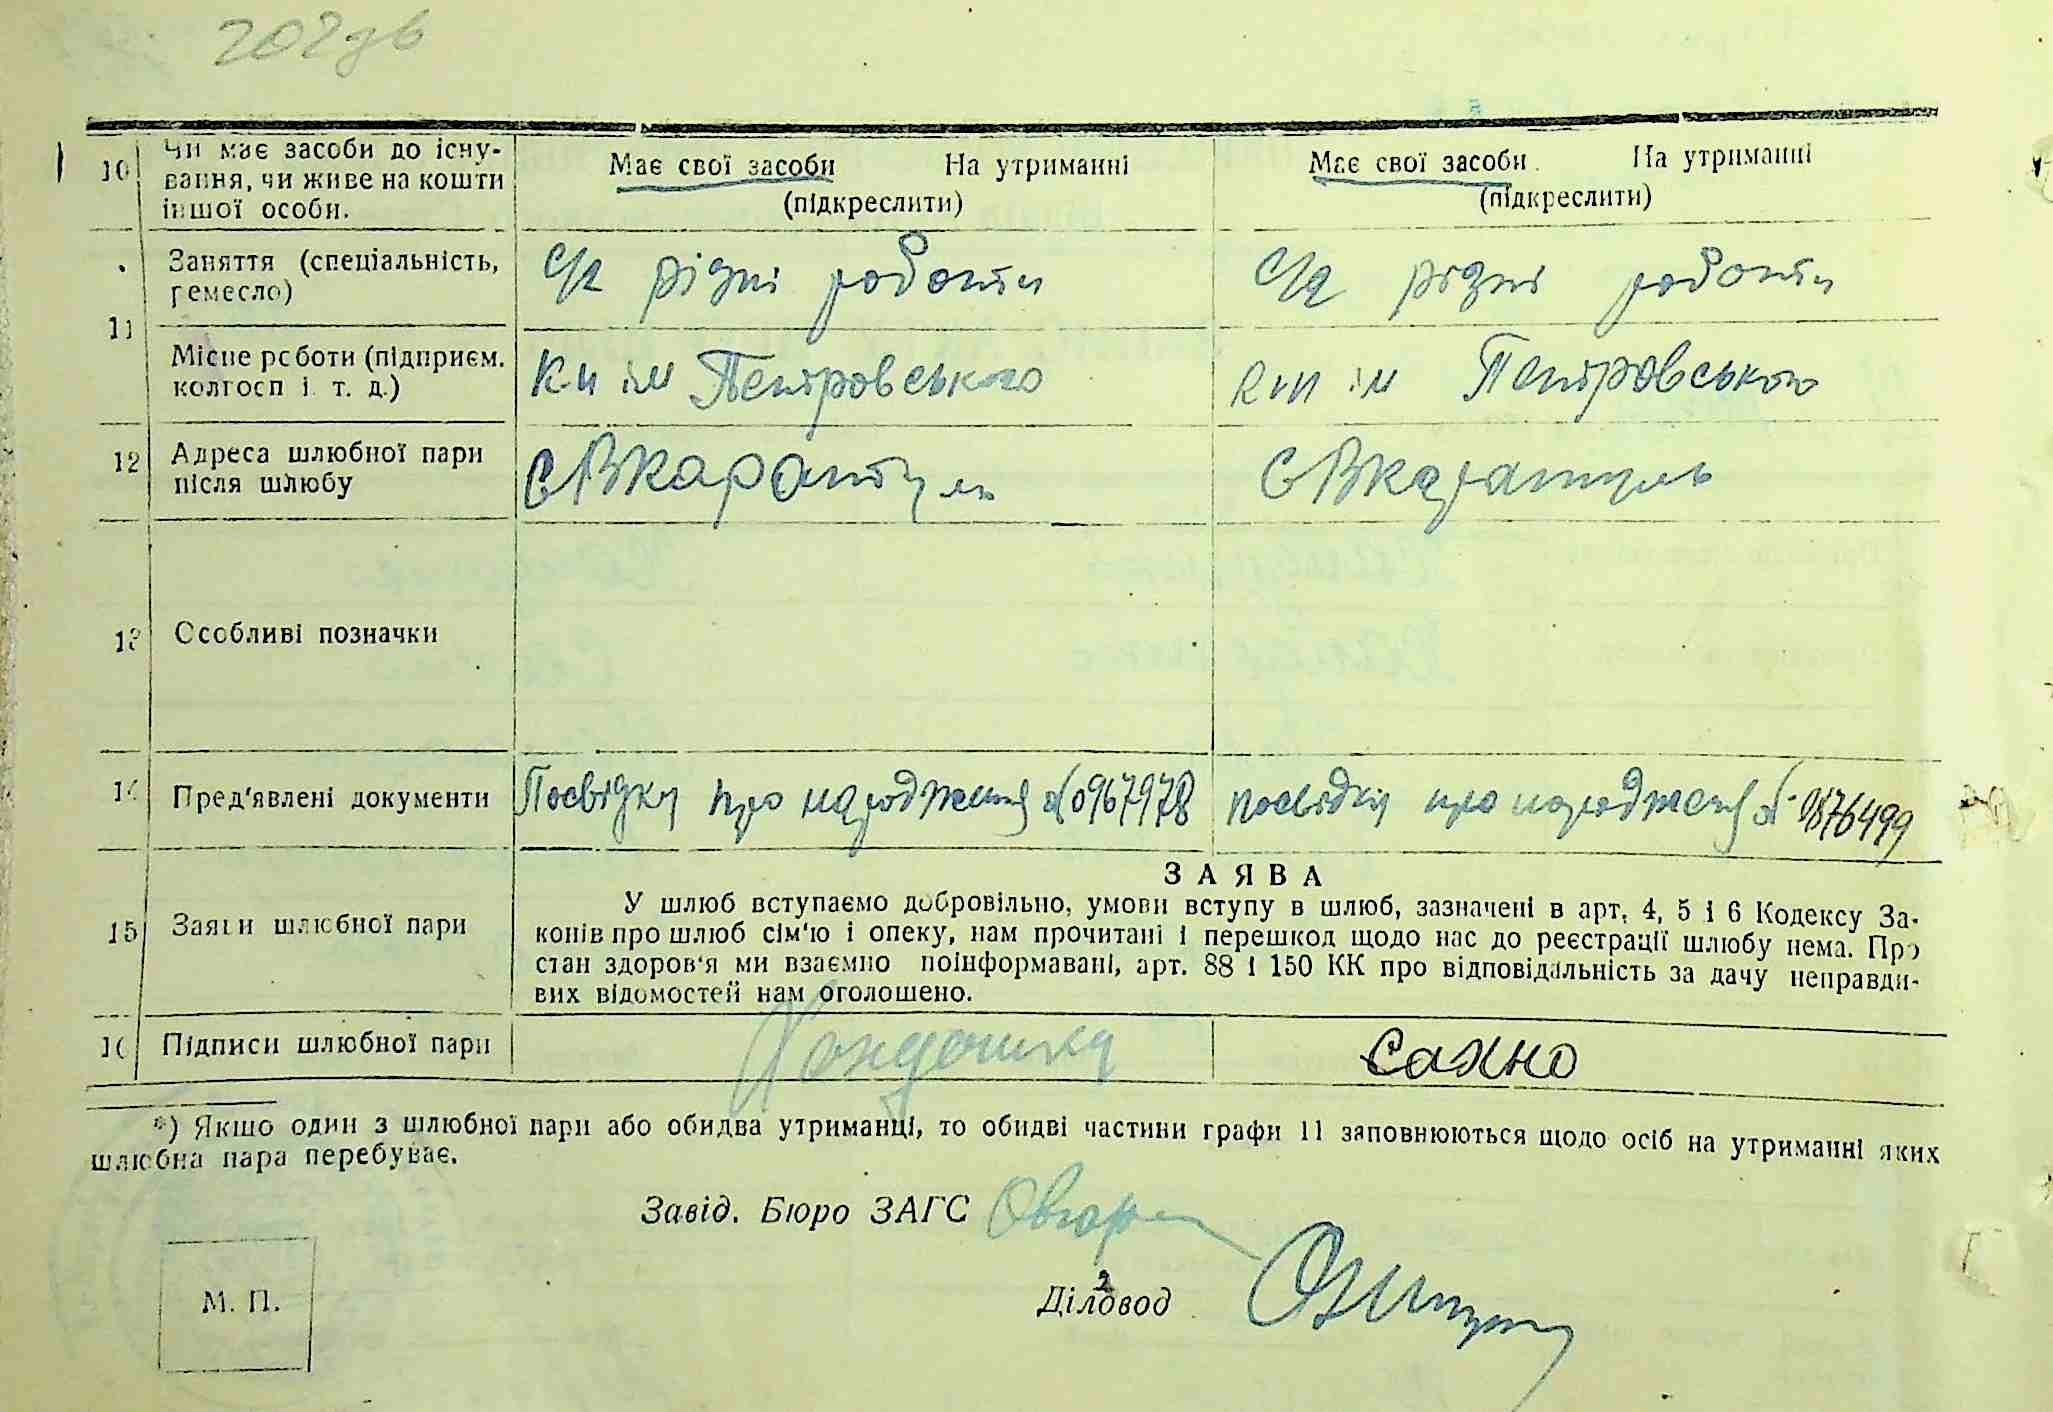 10 Чи має засоби до існу-
вання, чи живе на кошти
іншої особи.
Має свої засоби На утриманні
(підкреслити)
Має свої засоби На утриманні
(підкреслити)
11 Заняття (спеціальність,
ремесло)
с/г різні роботи
с/г різні роботи
Місце роботи (підприєм.
колгосп і. т. д.)
ім Петровського
ім Петровського
12 Адреса шлюбної пари
після шлюбу
с В карантуль
с В каратуль
13 Особливі позначки
14 Пред'явлені документи
Посвідку про народження № 0967978
посвідку про народження № 0876499
15 Заяви шлюбної пари
ЗАЯВА
У шлюб вступаємо добровільно, умови вступу в шлюб, зазначені в арт. 4, 5 і 6 Кодексу За-
конів про шлюб сім'ю і опеку, нам прочитані і перешкод щодо нас до реєстрації шлюбу нема. Про
стан здоров'я ми взаємно поінформавані, арт. 88 і 150 КК про відповідальність за дачу неправди-
вих відомостей нам оголошено.
16 Підписи шлюбної пари
Сахно
*) Якшо один з шлюбної пари або обидва утриманці, то обидві частини графи 11 заповнюються щодо осіб на утриманні яких
шлюбна пара перебуває.
Завід. Бюро ЗАГС
Діловод
М. П.